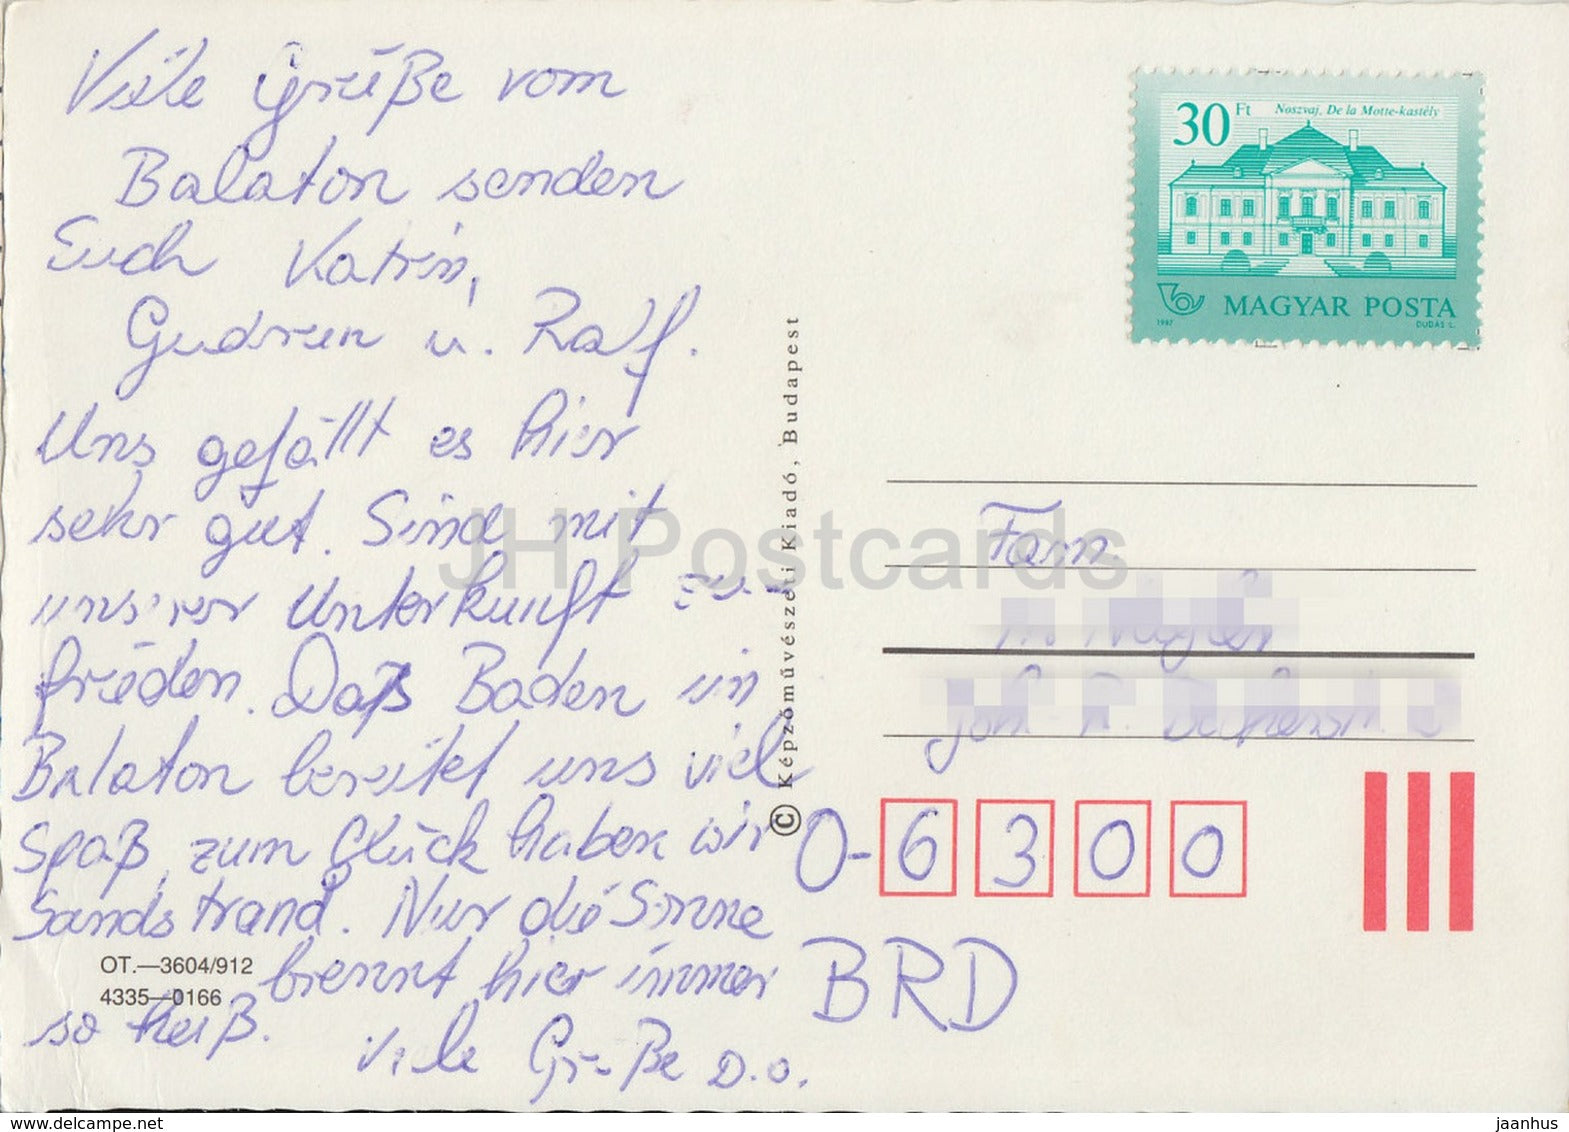 Viele Grüße vom
Balaton senden
Euch Katrin,
Gudrun u. Ralf.
Uns gefällt es hier
sehr gut. Sind mit
unserer Unterkunft zu-
frieden. Daß Baden im
Balaton bereitet uns viel
Spaß, zum Glück haben wir
Sandstrand. Nur die Sonne
brennt hier immer
so heiß.
Viele Grüße D.O.
OT.—3604/912
4335—0166
© Képzőművészeti Kiadó, Budapest
30 Ft
Noszvaj, De la Motte-kastély
MAGYAR POSTA
1987
DUDÁS L.
Fam.
O-6300
BRD
JH Postcards
www.delcampe.net
jaanhus